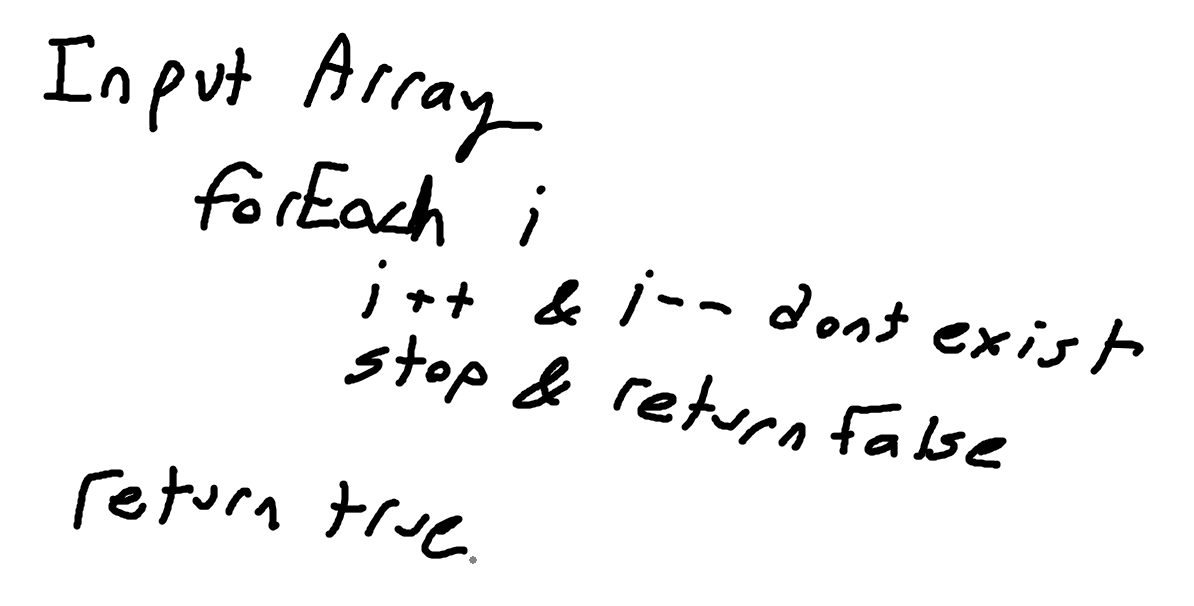 Input Array
forEach i
i++ & i-- dont exist
stop & return False
return true.